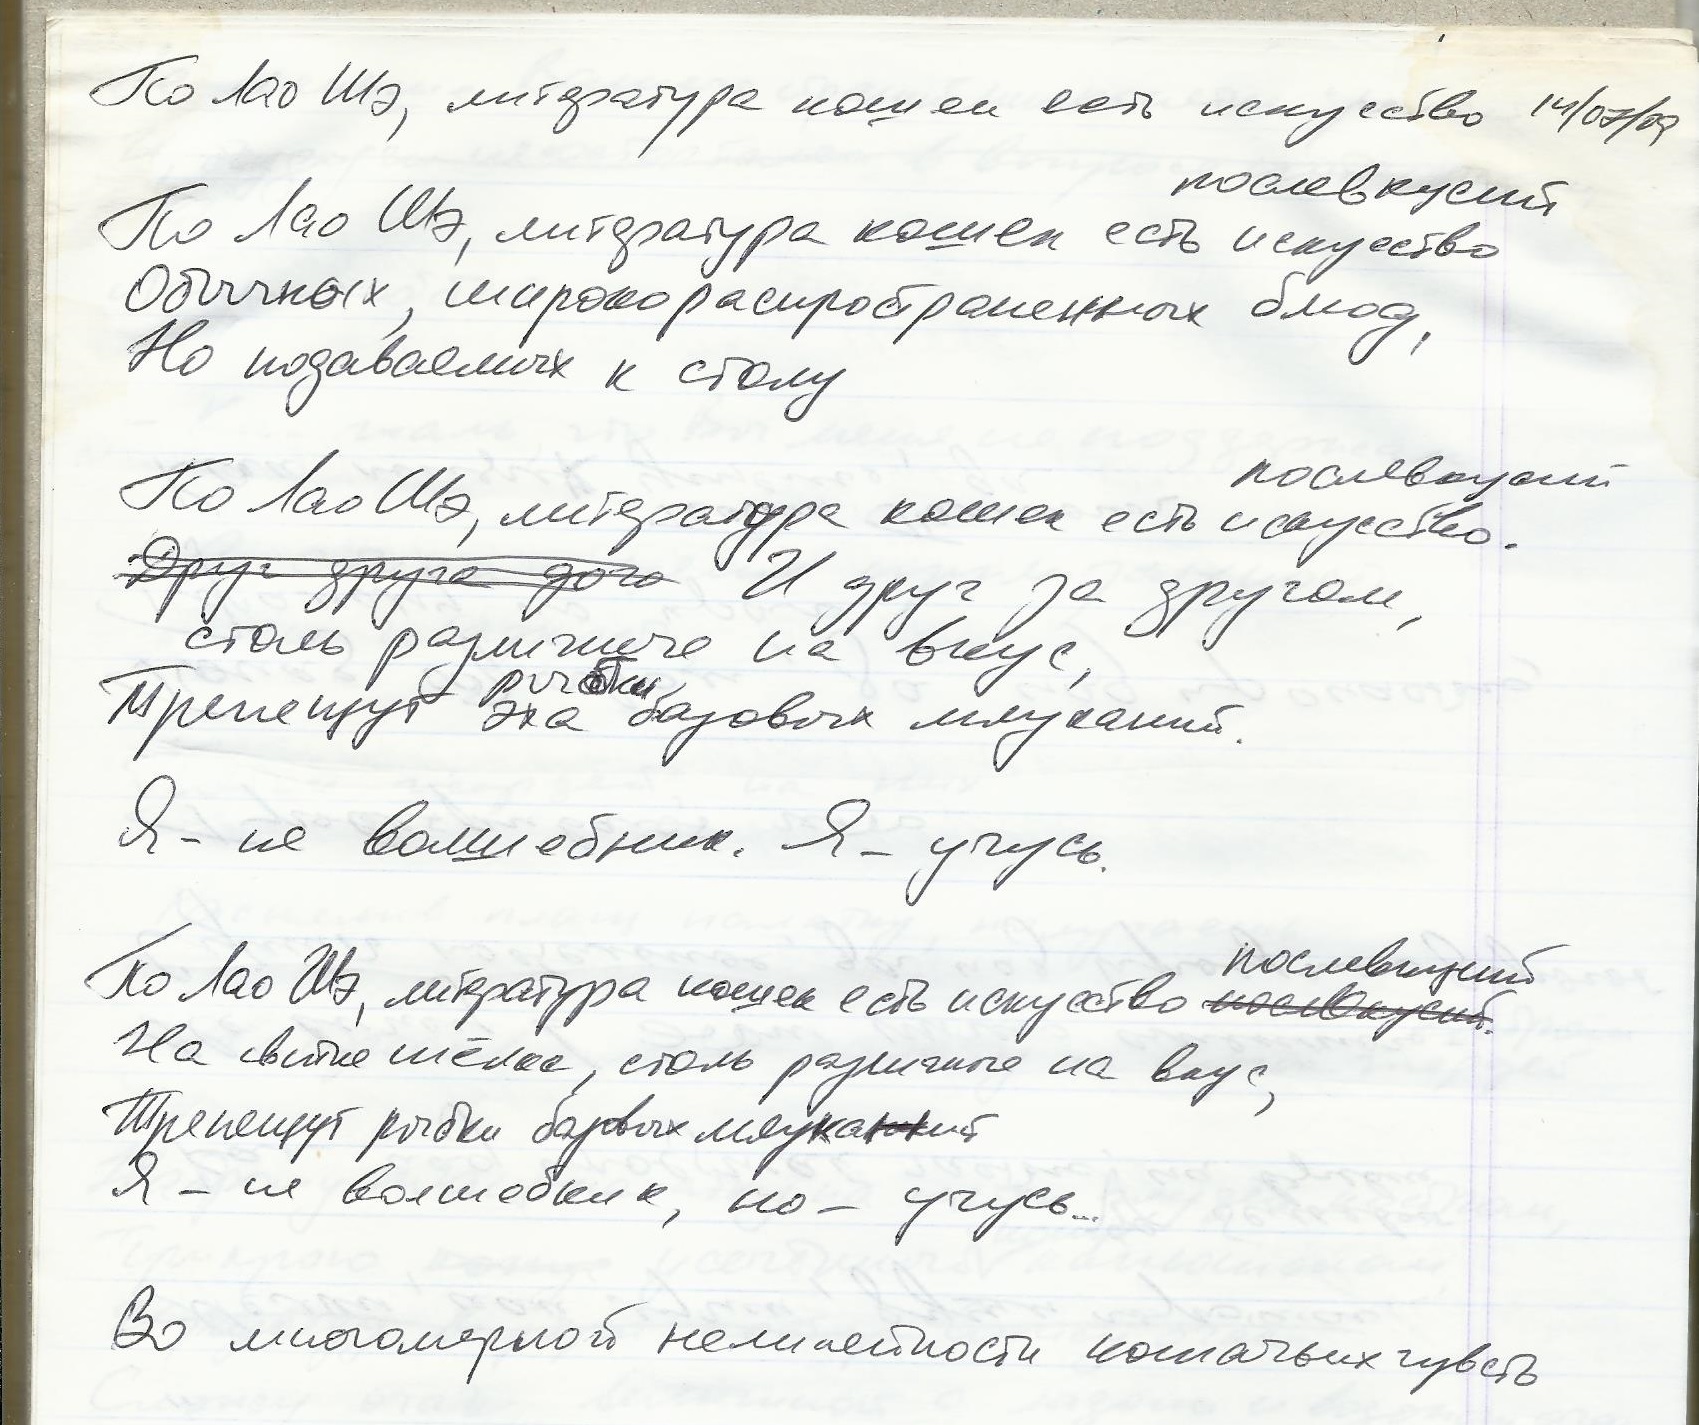 По Лао Шэ, литература кошек есть искусство 14/07/09
послевкусий
По Лао Шэ, литература кошек есть искусство
Обычных, широкораспространенных блюд,
Но подаваемых к столу
послевкусий
По Лао Шэ, литература кошек есть искусство.
Друг друга дого И друг за другом,
столь различные на вкус,
рыбки
Трепещут эха базовых мяуканий.
Я - не волшебник. Я - учусь.
послевкусий
По Лао Шэ, литература кошек есть искусство послевкусий.
На свитке шёлка, столь различные на вкус,
Трепещут рыбки базовых мяуканий
Я - не волшебник, но - учусь...
Во многомерной нелинейности кошачьих чувств